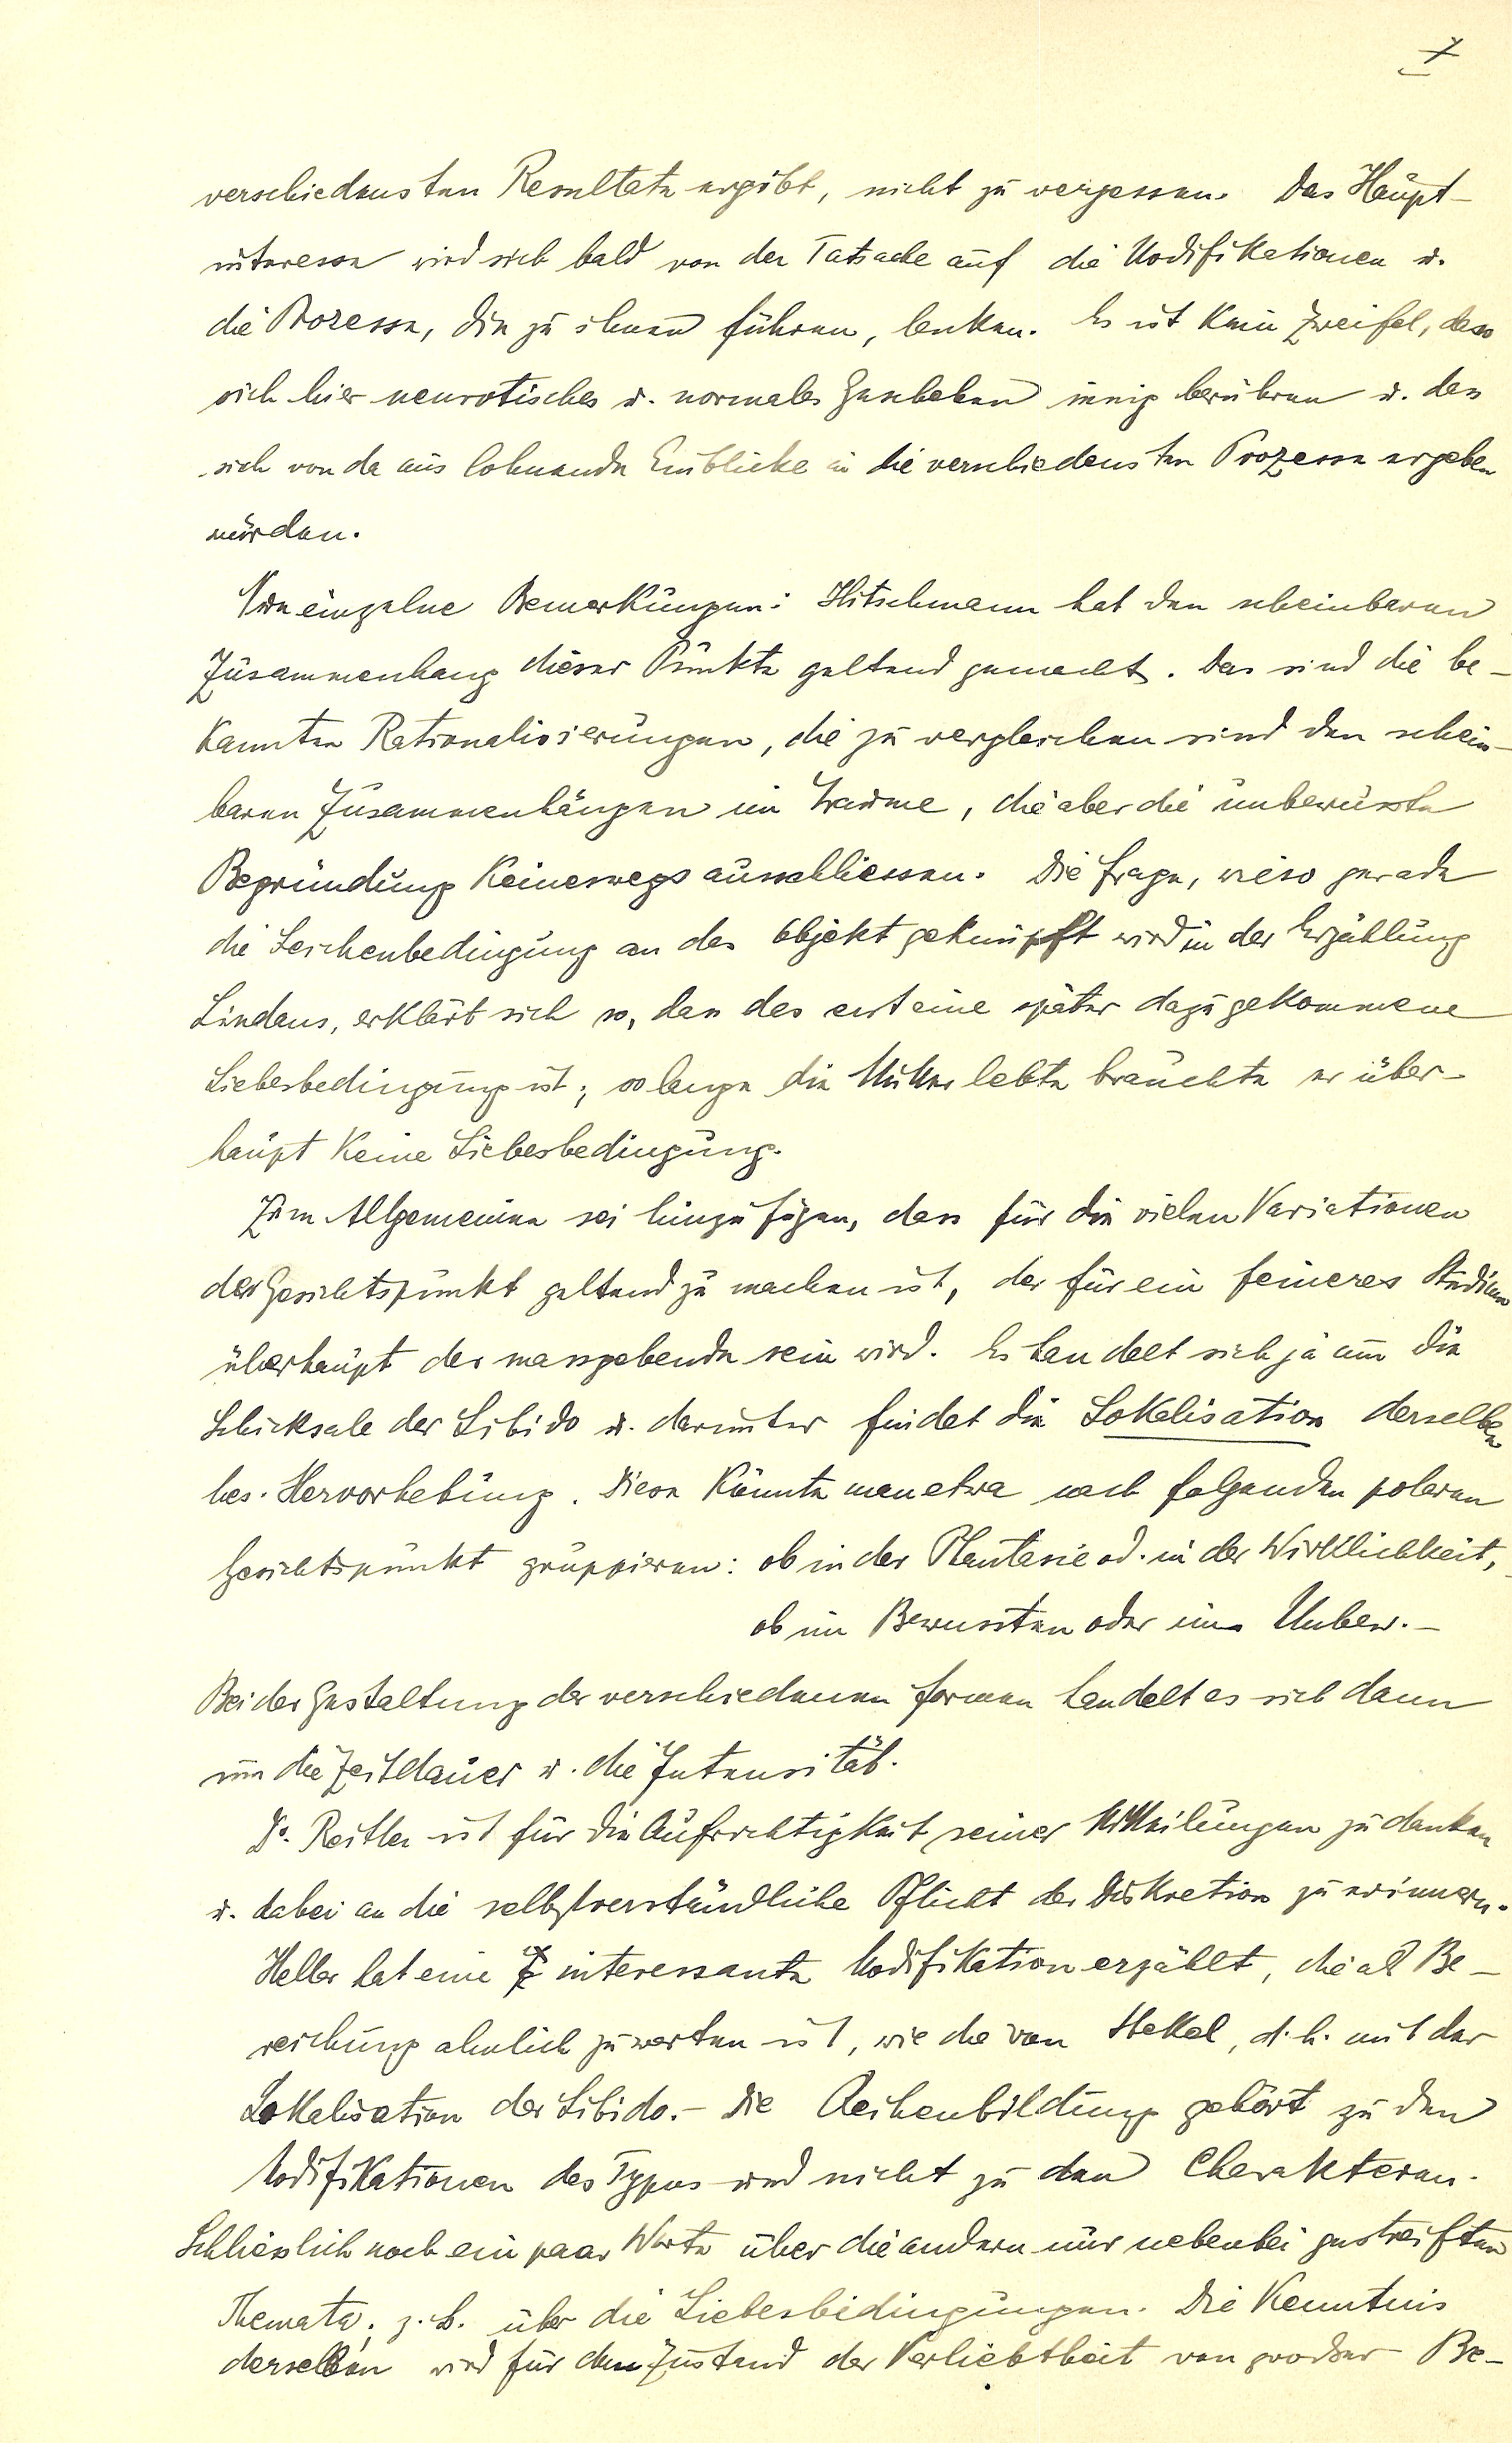 7
verschiedensten Resultate ergibt, nicht zu vergessen. Das Haupt-
interesse wird sich bald von der Tatsache auf die Modifikationen u.
die Prozesse, die zu ihnen führen, lenken. Es ist kein Zweifel, dass
sich hier neurotisches u. normales Geschehen innig berühren u. dass
sich von da aus lohnende Einblicke in die verschiedensten Prozesse ergeben
würden.
Nun einzelne Bemerkungen: Hitschmann hat den scheinbaren
Zusammenhang dieser Punkte geltend gemacht. Das sind die be-
kannten Rationalisierungen, die zu vergleichen sind den schein-
baren Zusammenhängen im Traume, die aber die unbewusste
Begründung keineswegs ausschliessen. Die Frage, wieso gerade
die Leichenbedingung an das Objekt geknüpft wird in der Erzählung
Lindaus, erklärt sich so, dass das erst eine später dazugekommene
Liebesbedingung ist; solange die Mutter lebte brauchte er über-
haupt keine Liebesbedingung.
Zum Allgemeinen sei hinzufügen, dass für die vielen Variationen
der Gesichtspunkt geltend zu machen ist, der für ein feineres Studium
überhaupt der massgebende sein wird. Es handelt sich ja um die
Schicksale der Libido u. darunter findet die Lokalisation derselben
bes. Hervorhebung. Diese könnte man etwa nach folgenden polaren
Gesichtspunkt gruppieren: ob in der Phantasie od. in der Wirklichkeit,
ob im Bewussten oder im Unbew.-
Bei der Gestaltung der verschiedenen Formen handelt es sich dann
um die Zeitdauer u. die Intensität.
Dr. Reitler ist für die Aufrichtigkeit seiner Mitteilungen zu danken
u. dabei an die selbstverständliche Pflicht der Diskretion zu erinnern.
Heller hat eine interessante Modifikation erzählt, die als Be-
reichung ahnlich zu werten ist, wie die von Stekel, d.h. mit der
Lokalisation der Libido.- Die Reihenbildung gehört zu den
Modifikationen des Typus und nicht zu den Charakteren.
Schliesslich noch ein paar Worte über die andern nur nebenbei gestreiften
Themata; z.B. über die Liebesbedingungen. Die Kenntnis
derselben wird für den Zustand der Verliebtheit von grosser Be-